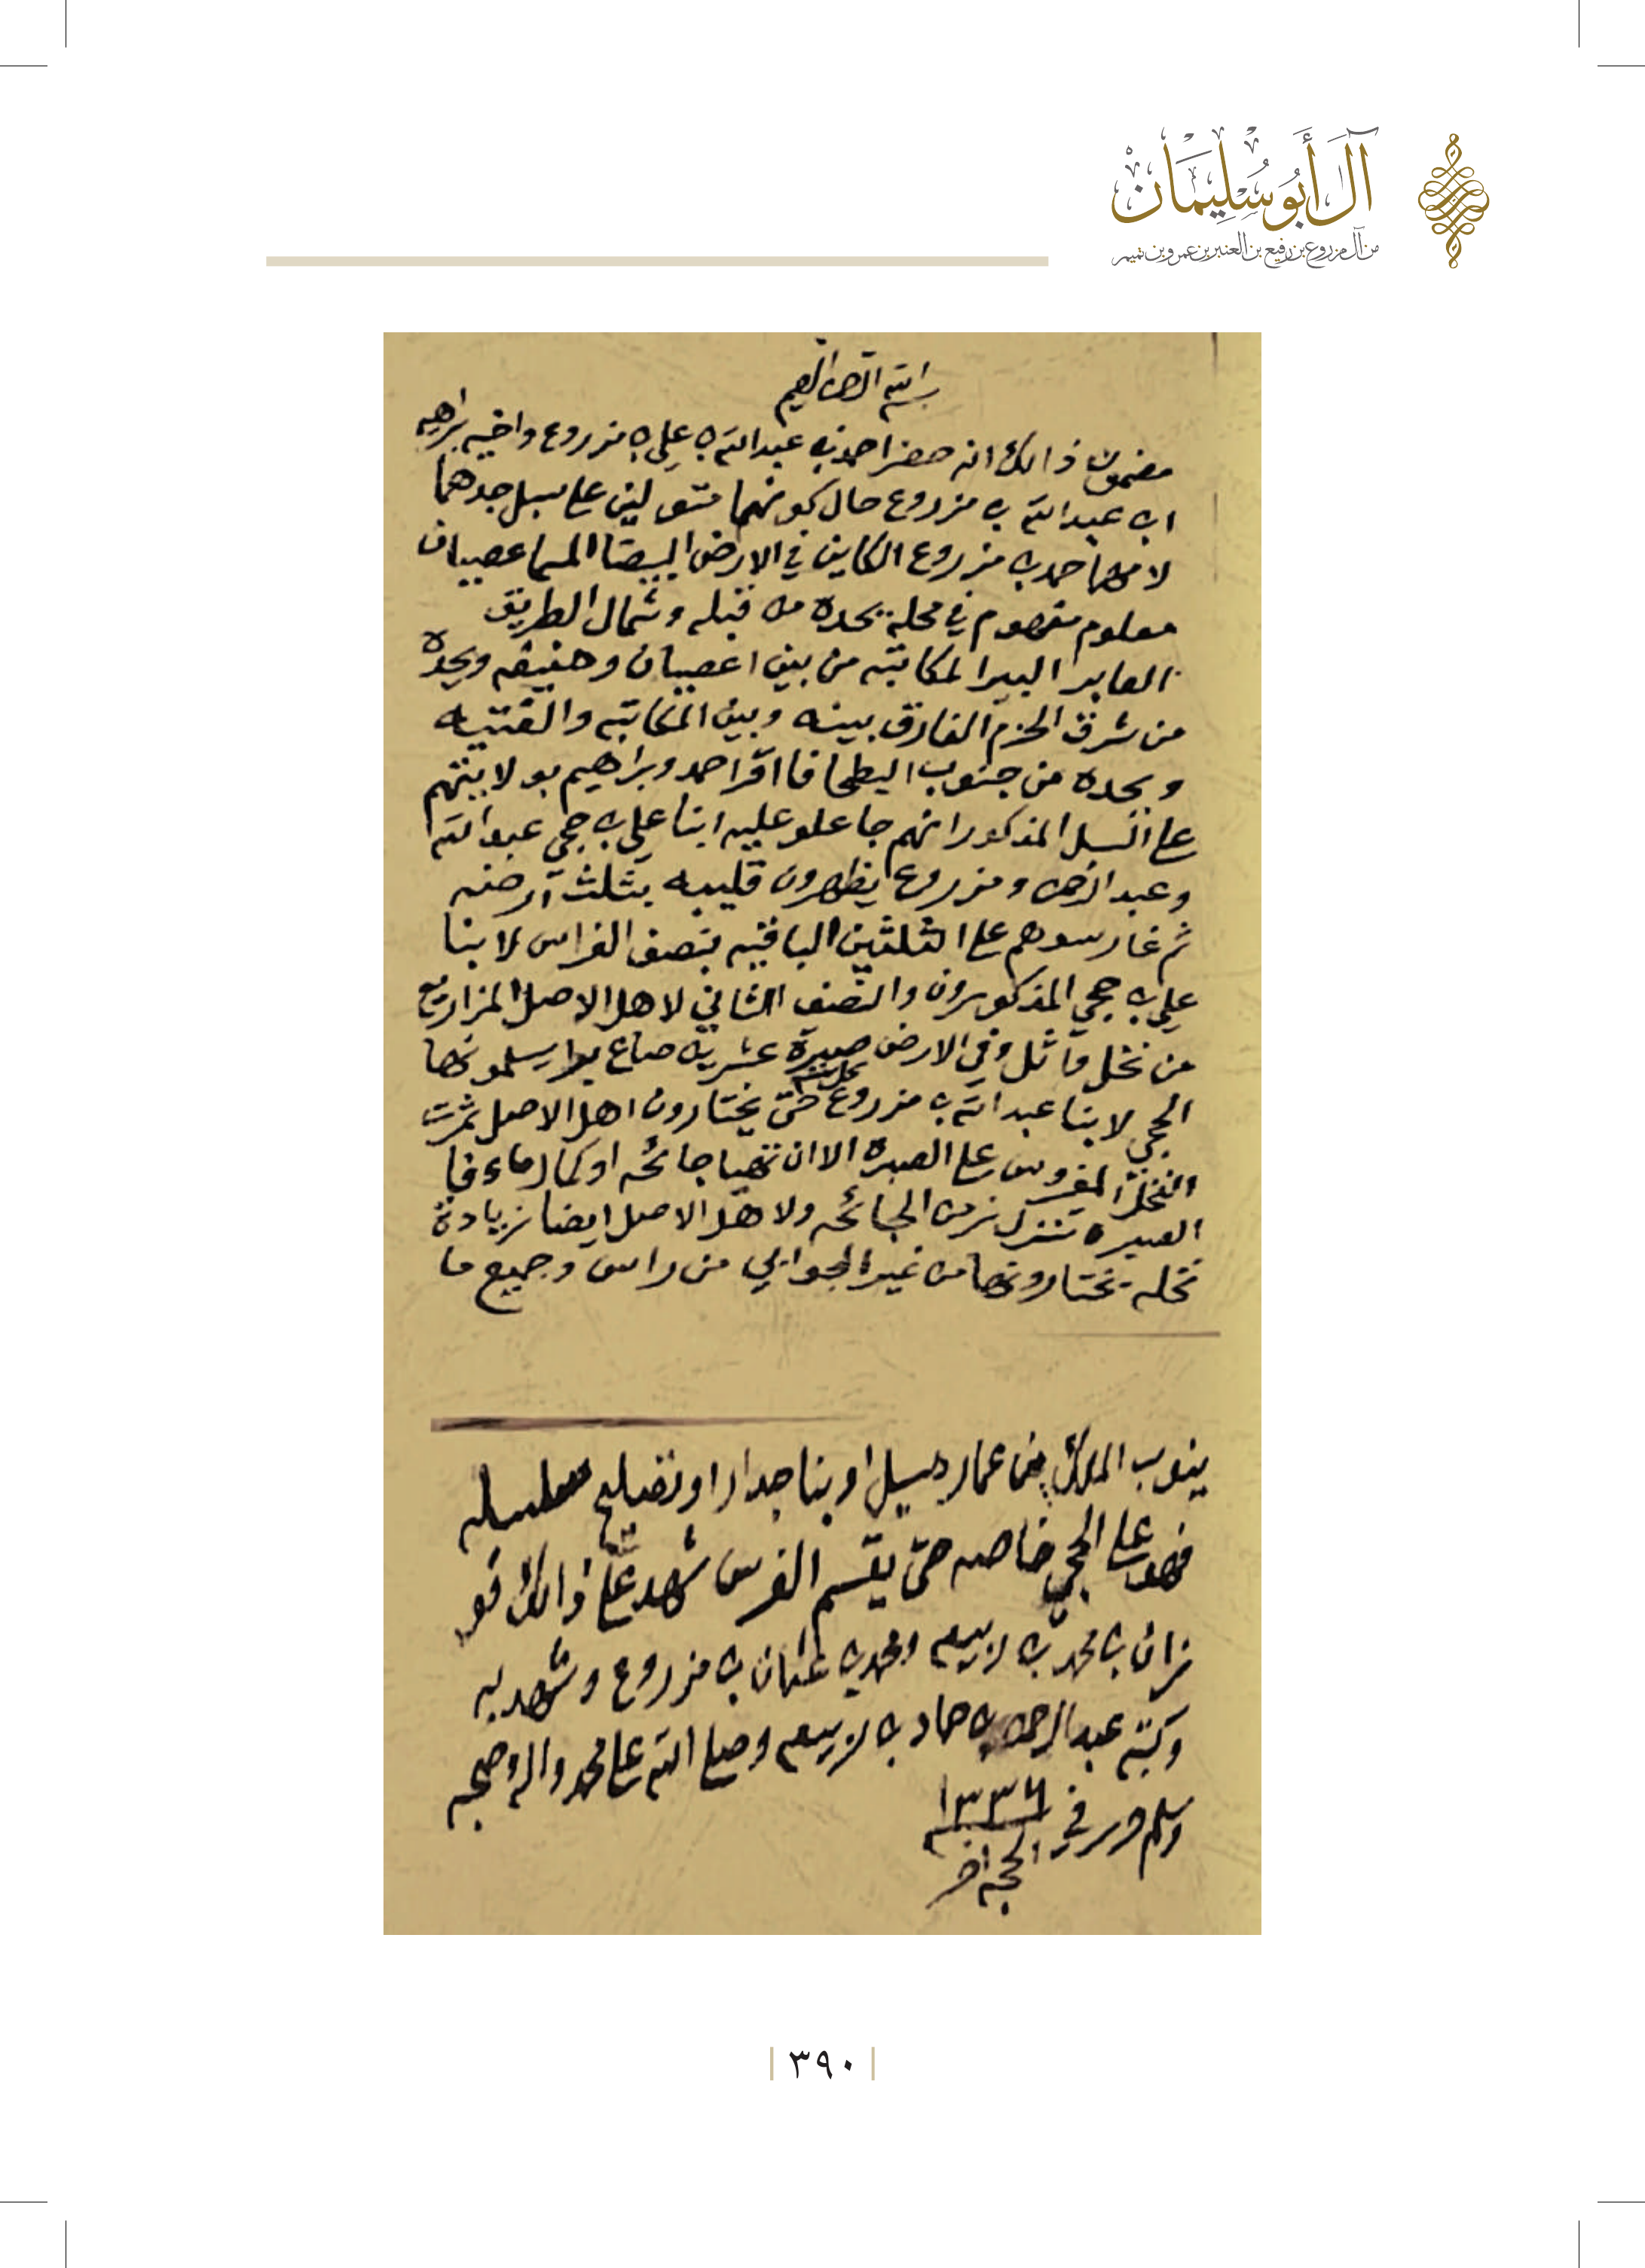 آل أَبُو سُلِيمَان
من آل مزروع بن رفيع بن العنبر بن عمرو بن تميم
بسم الله الرحمن الرحيم
مضمون ذالك انه حضر احمد بن عبدالله بن علي بن مزروع واخيه براهيم
ابن عبدالله بن مزروع حال كونهما متولين على سبل جدهما
لامهما حمد بن مزروع الكاين في الارض البيضا المسما عصيبان
معلوم مفهوم في محلة يحده من قبله وشمال الطريق
العابر البير المكاتبه من بين اعصيبان وحنيفه ويحده
من شرق الحزم الفارق بينه وبين المكاتبه والقتيبه
ويحده من جنوب البطحا فا اقر احمد وبراهيم بولايتهم
على السبل المذكور انهم جاعلو عليه ابنا علي بن حجي عبدالله
وعبدالرحمن ومزروع يظهرون قليبه بثلث ارضه
ثم غارسوهم على الثلثين الباقيه بنصف الغراس لابنا
علي بن حجي المذكورون والنصف الثاني لاهل الاصل المزاريع
من نخل واثل وفي الارض صبرة عشرين صاع يسلمونها
الحجي لابنا عبدالله بن مزروع كل سنه حتى يختارون اهل الاصل ثمرت
النخل المغروس على الصبره الا ان تصيبها جائحه او كمال ماء فا
الصبره تنزل من الجائحه ولاهل الاصل ايضا زيادة
نخله يختارونها من غير الجوابي من راس وجميع ما
ينوب الملك من عمار سيل او بنا جدار او تضليع
فهو على الحجي خاصه حتى يقسم الغرس شهد على ذالك فو
زان بن محمد بن ربيعه ومحمد بن عثمان بن مزروع وشهد به
وكتبه عبدالرحمن بن حماد بن ربيعه وصلى الله على محمد واله وصحبه
وسلم حرر في ١٣٣٦
الحجه اخر
٣٩٠